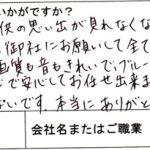 いかがですか？
供の思い出が見れなくな
御社にお願いして全て
画質も音もきれいで、ブルー
で安心してお任せ出来ま
ないです。本当にありがと
会社名またはご職業